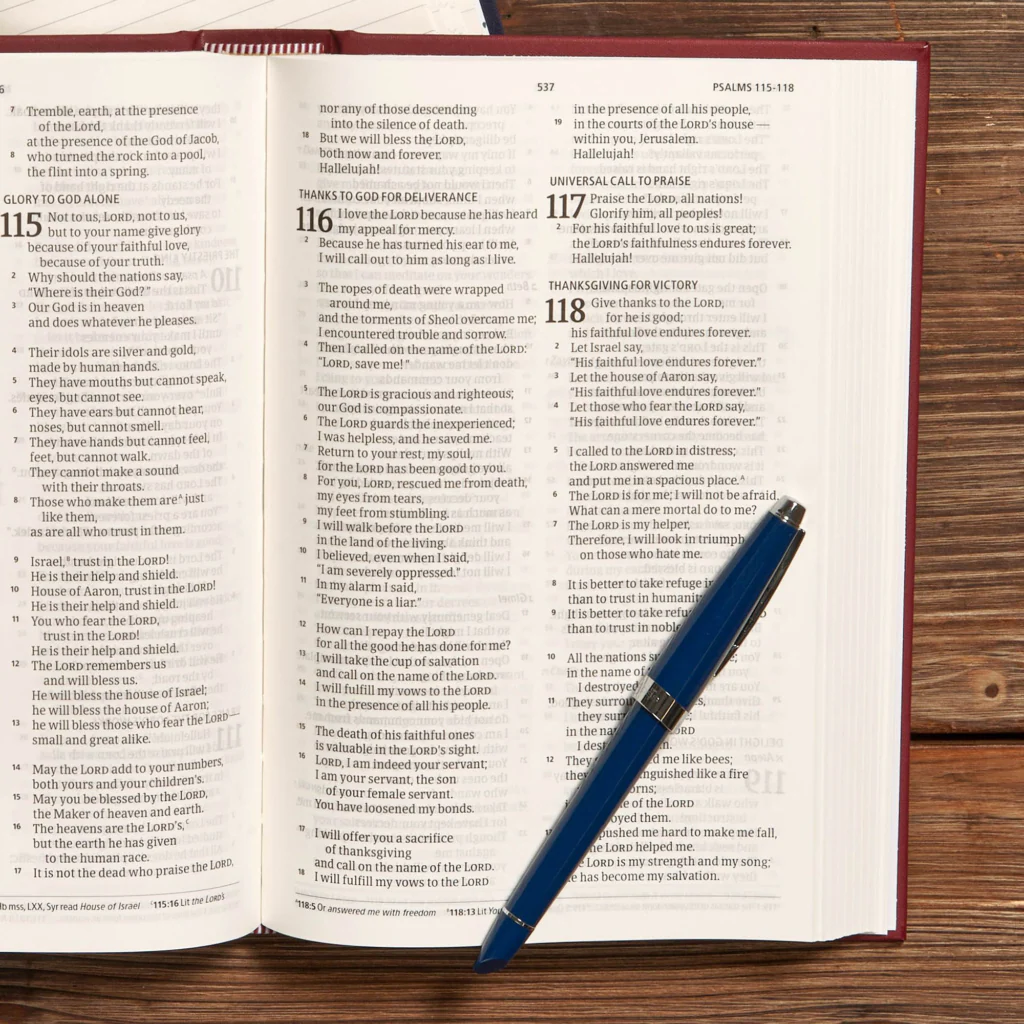 7 Tremble, earth, at the presence
of the Lord,
at the presence of the God of Jacob,
8 who turned the rock into a pool,
the flint into a spring.
GLORY TO GOD ALONE
115 Not to us, LORD, not to us,
but to your name give glory
because of your faithful love,
because of your truth.
2 Why should the nations say,
“Where is their God?”
3 Our God is in heaven
and does whatever he pleases.
4 Their idols are silver and gold,
made by human hands.
5 They have mouths but cannot speak,
eyes, but cannot see.
6 They have ears but cannot hear,
noses, but cannot smell.
7 They have hands but cannot feel,
feet, but cannot walk.
They cannot make a sound
with their throats.
8 Those who make them are^A just
like them,
as are all who trust in them.
9 Israel,^B trust in the LORD!
He is their help and shield.
10 House of Aaron, trust in the LORD!
He is their help and shield.
11 You who fear the LORD,
trust in the LORD!
He is their help and shield.
12 The LORD remembers us
and will bless us.
He will bless the house of Israel;
he will bless the house of Aaron;
13 he will bless those who fear the LORD —
small and great alike.
14 May the LORD add to your numbers,
both yours and your children’s.
15 May you be blessed by the LORD,
the Maker of heaven and earth.
16 The heavens are the LORD’s,^C
but the earth he has given
to the human race.
17 It is not the dead who praise the LORD,
mss, LXX, Syr read House of Israel ^C115:16 Lit the LORD’s
537 PSALMS 115-118
nor any of those descending
into the silence of death.
18 But we will bless the LORD,
both now and forever.
Hallelujah!
THANKS TO GOD FOR DELIVERANCE
116 I love the LORD because he has heard
my appeal for mercy.
2 Because he has turned his ear to me,
I will call out to him as long as I live.
3 The ropes of death were wrapped
around me,
and the torments of Sheol overcame me;
I encountered trouble and sorrow.
4 Then I called on the name of the LORD:
“LORD, save me!”
5 The LORD is gracious and righteous;
our God is compassionate.
6 The LORD guards the inexperienced;
I was helpless, and he saved me.
7 Return to your rest, my soul,
for the LORD has been good to you.
8 For you, LORD, rescued me from death,
my eyes from tears,
my feet from stumbling.
9 I will walk before the LORD
in the land of the living.
10 I believed, even when I said,
“I am severely oppressed.”
11 In my alarm I said,
“Everyone is a liar.”
12 How can I repay the LORD
for all the good he has done for me?
13 I will take the cup of salvation
and call on the name of the LORD.
14 I will fulfill my vows to the LORD
in the presence of all his people.
15 The death of his faithful ones
is valuable in the LORD’s sight.
16 LORD, I am indeed your servant;
I am your servant, the son
of your female servant.
You have loosened my bonds.
17 I will offer you a sacrifice
of thanksgiving
and call on the name of the LORD.
18 I will fulfill my vows to the LORD
in the presence of all his people,
19 in the courts of the LORD’s house —
within you, Jerusalem.
Hallelujah!
UNIVERSAL CALL TO PRAISE
117 Praise the LORD, all nations!
Glorify him, all peoples!
2 For his faithful love to us is great;
the LORD’s faithfulness endures forever.
Hallelujah!
THANKSGIVING FOR VICTORY
118 Give thanks to the LORD,
for he is good;
his faithful love endures forever.
2 Let Israel say,
“His faithful love endures forever.”
3 Let the house of Aaron say,
“His faithful love endures forever.”
4 Let those who fear the LORD say,
“His faithful love endures forever.”
5 I called to the LORD in distress;
the LORD answered me
and put me in a spacious place.^A
6 The LORD is for me; I will not be afraid.
What can a mere mortal do to me?
7 The LORD is my helper,
Therefore, I will look in triumph
on those who hate me.
8 It is better to take refuge in
than to trust in
9 It is better to take
than to trust in
10 All the nations
in the name of
I destroyed
11 They
they
in the
I
12 They me like bees;
they like a fire
of the LORD
them.
pushed me hard to make me fall,
LORD helped me.
LORD is my strength and my song;
has become my salvation.
^A118:5 Or answered me with freedom ^B118:13 Lit You